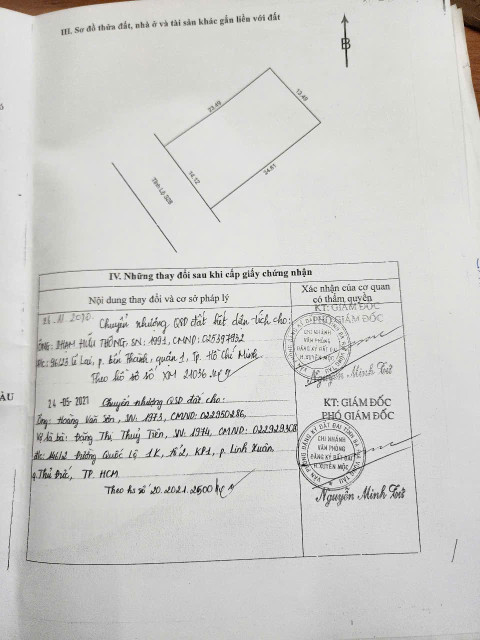 III. Sơ đồ thửa đất, nhà ở và tài sản khác gắn liền với đất
B
23.49
13.49
14.12
34.81
IV. Những thay đổi sau khi cấp giấy chứng nhận
Nội dung thay đổi và cơ sở pháp lý
Xác nhận của cơ quan
có thẩm quyền
Chuyển nhượng QSD đất hết diện tích cho:
ÔNG: PHẠM HỮU THÔNG, SN: 1991, CMND: 025397932
p. Bến Thành, quận 1, Tp. Hồ Chí Minh
Theo hồ sơ số
KT. GIÁM ĐỐC
PHÓ GIÁM ĐỐC
CHI NHÁNH
VĂN PHÒNG
ĐĂNG KÝ ĐẤT ĐAI
H.XUYÊN MỘC
Nguyễn Minh Tú
24-05-2021 Chuyển nhượng QSD đất cho:
Ông: Hoàng Văn Sơn, SN: 1973, CMND: 022950286,
Đặng Thị Thuỷ Tiên, SN: 1974, CMND: 022929308
Đường Quốc Lộ 1K, KP1, p. Linh Xuân,
q. Thủ Đức, TP. HCM
Theo hs số 20.2021.2500
KT. GIÁM ĐỐC
PHÓ GIÁM ĐỐC
VĂN PHÒNG ĐĂNG KÝ ĐẤT ĐAI TỈNH BÀ RỊA VŨNG TÀU
CHI NHÁNH
VĂN PHÒNG
ĐĂNG KÝ ĐẤT ĐAI
H.XUYÊN MỘC
Nguyễn Minh Tú